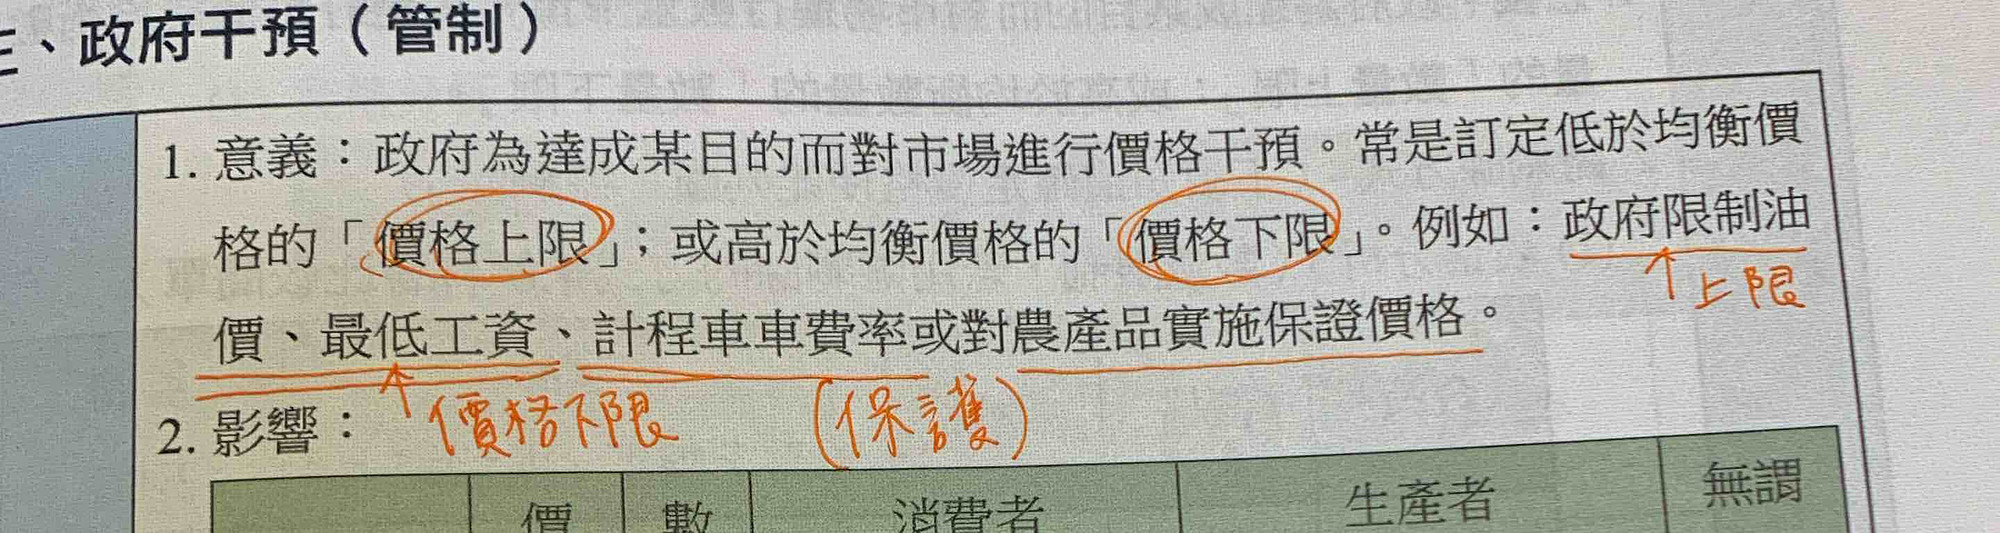 、政府干預（管制）
1. 意義：政府為達成某目的而對市場進行價格干預。常是訂定低於均衡價
格的「價格上限」；或高於均衡價格的「價格下限」。例如：政府限制油
上限
價、最低工資、計程車車費率或對農產品實施保證價格。
價格下限 (保護)
2. 影響：
價 數 消費者 生產者 無謂